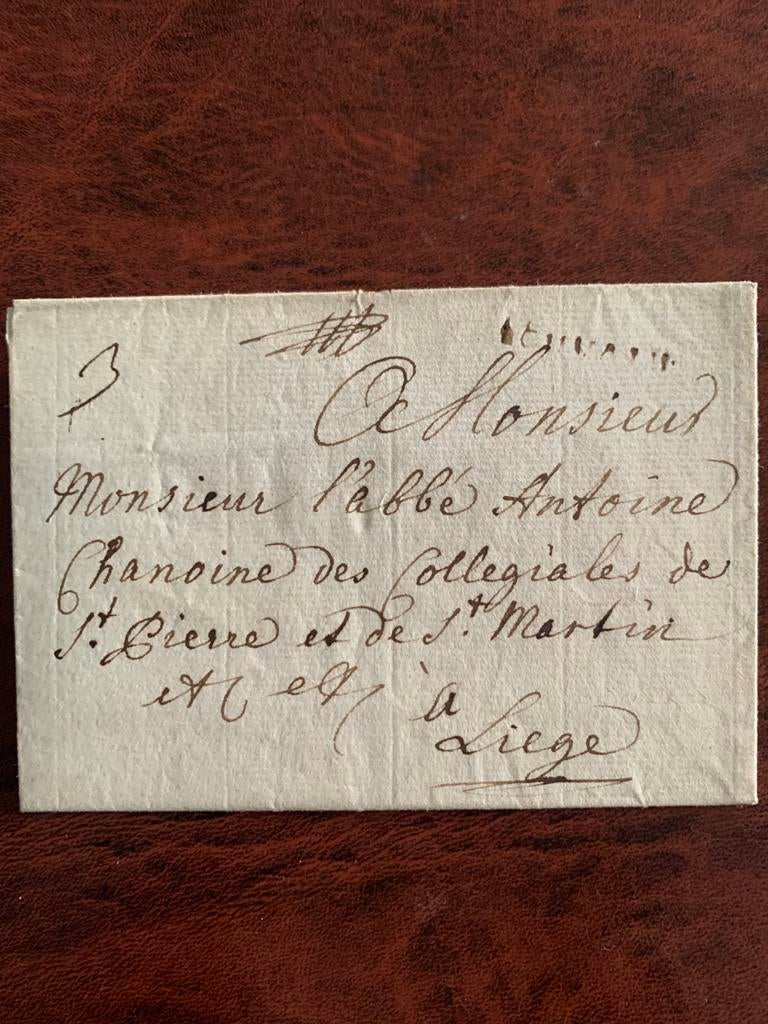 3
A Monsieur
Monsieur l'abbé Antoine
Chanoine des Collegiales de
St. Pierre et de St. Martin
etc etc à
Liege